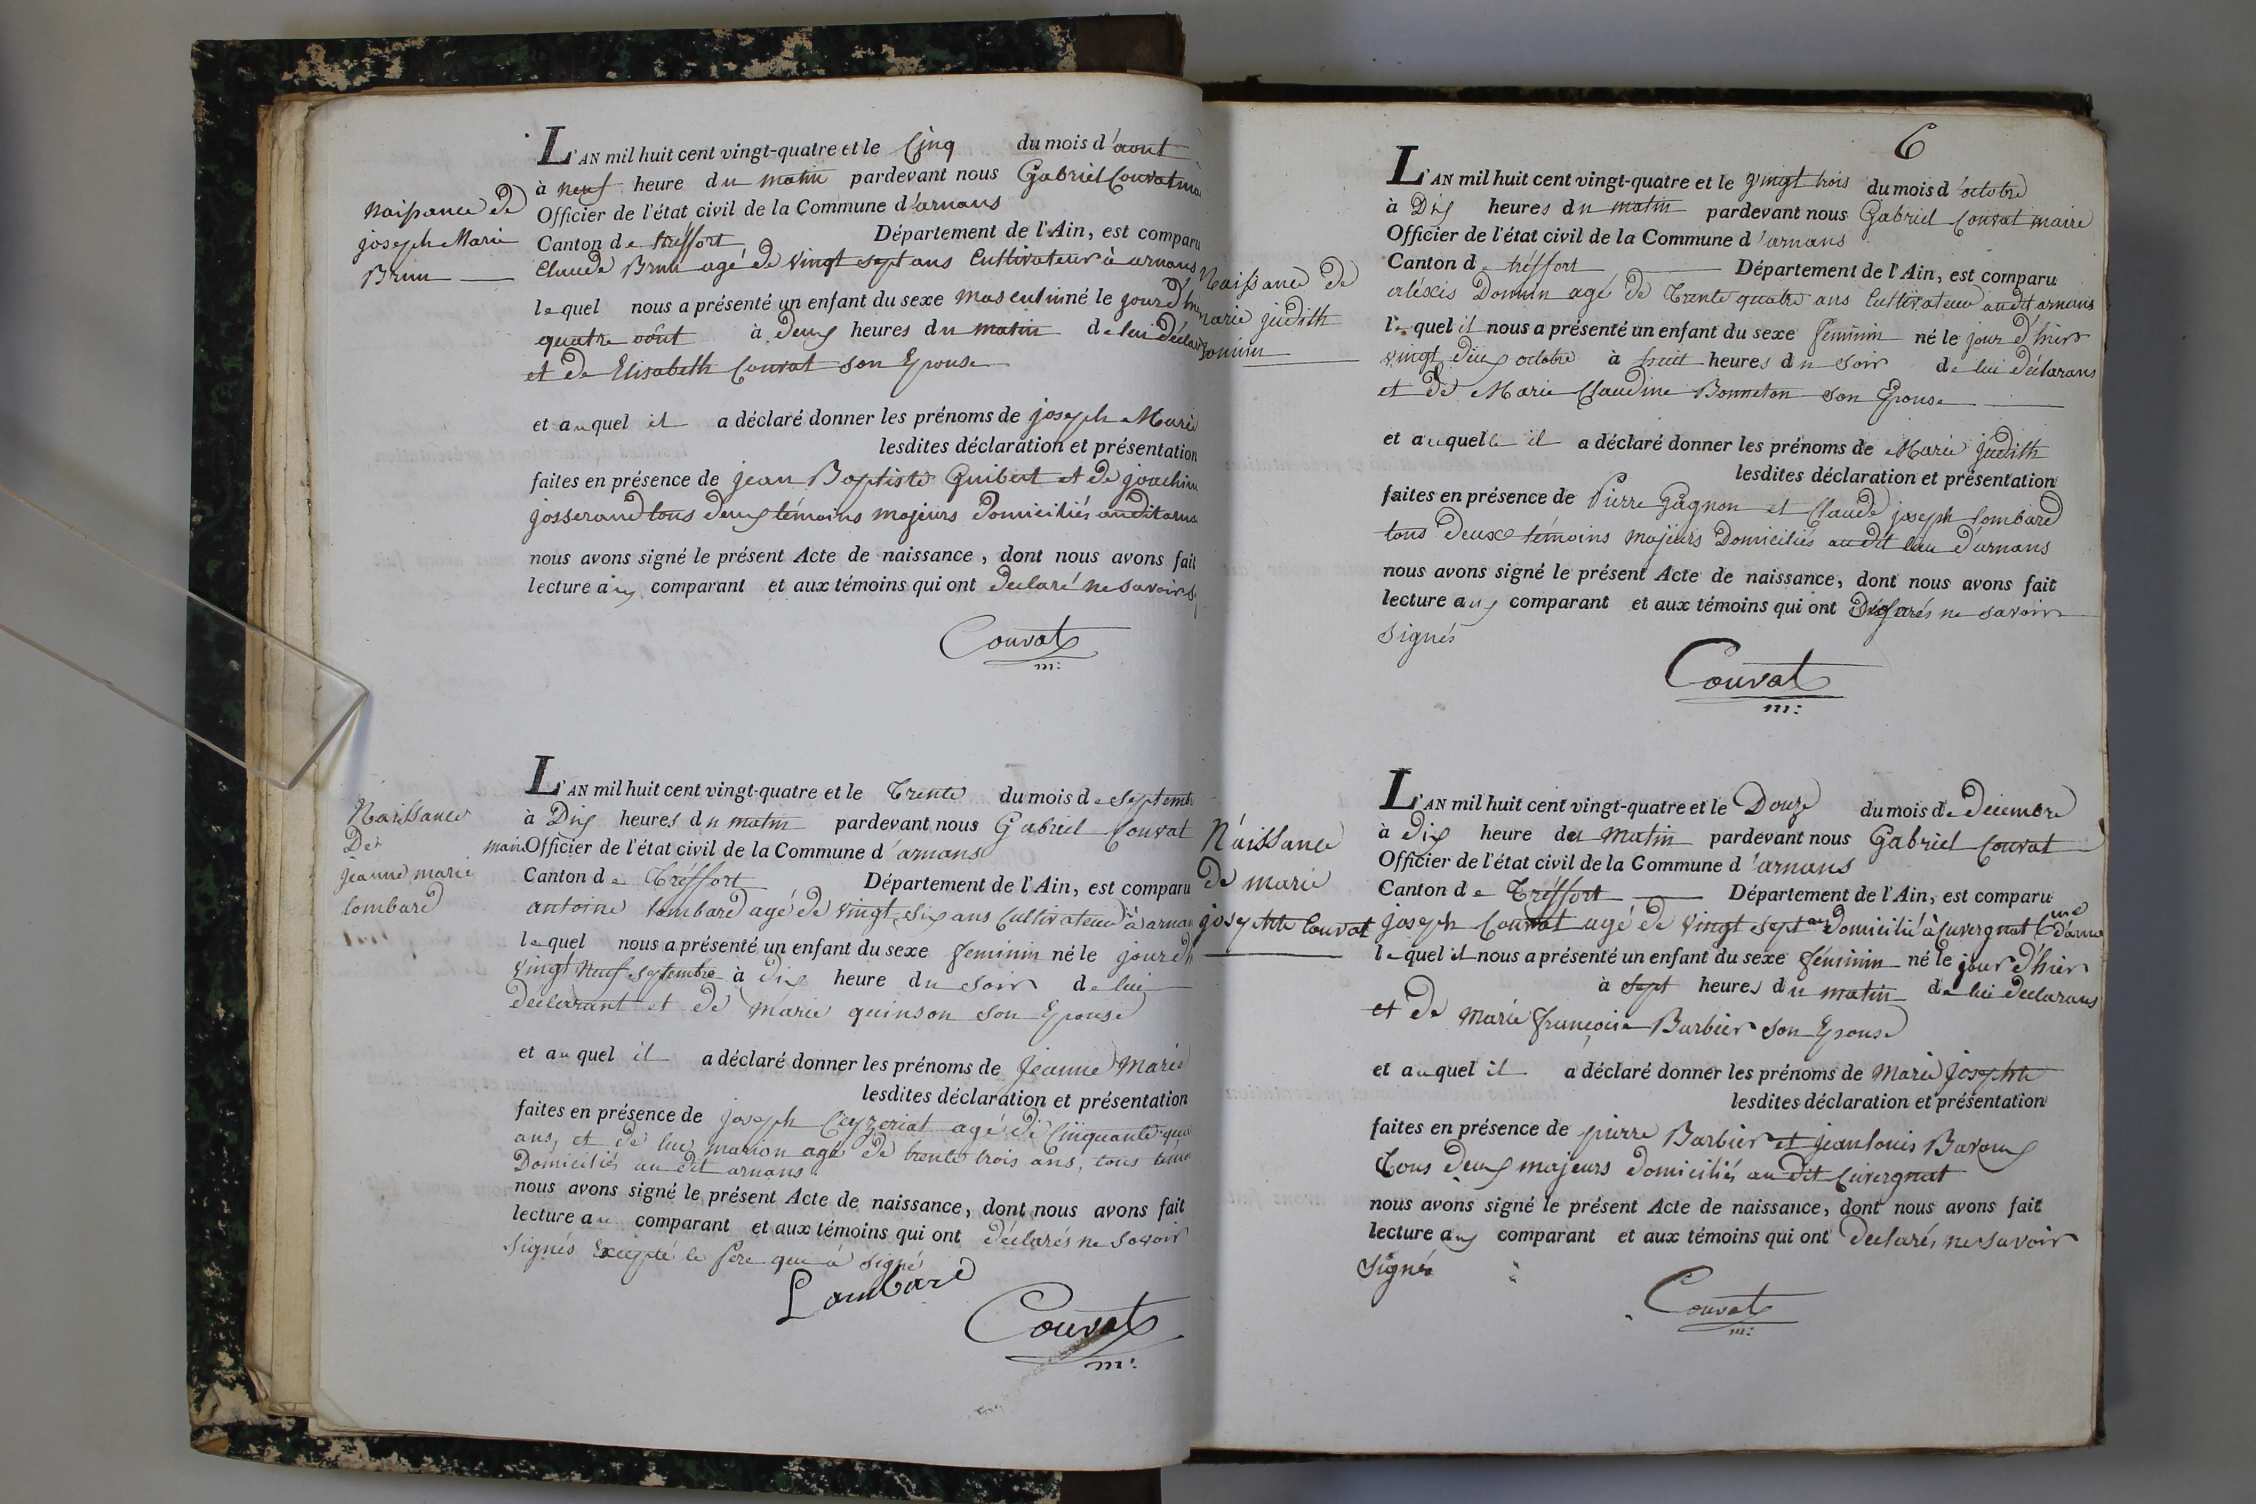 Naissance de
joseph Marie
Brun
L'AN mil huit cent vingt-quatre et le Cinq du mois d'aout
à neuf heure du matin pardevant nous Gabriel Couvat
Officier de l'état civil de la Commune d'arnans
Canton de tréffort Département de l'Ain, est comparu
Claude Brun agé de vingt sept ans Cultivateur à arnans
lequel nous a présenté un enfant du sexe masculin né le jour d'hier
quatre oôut à deux heures du matin de lui
et de Elisabeth Couvat son Epouse
et auquel il a déclaré donner les prénoms de joseph Marie
lesdites déclaration et présentation
faites en présence de jean Baptiste Guibert et de joachim
josserand tous deux témoins majeurs Domiciliés audit
nous avons signé le présent Acte de naissance, dont nous avons fait
lecture aux comparant et aux témoins qui ont declaré ne savoir
Couvat
m:
Naissance
De
jeanne marie
lombard
L'AN mil huit cent vingt-quatre et le Trente du mois de septembre
à Dix heures du matin pardevant nous Gabriel Couvat
maire Officier de l'état civil de la Commune d'arnans
Canton de Tréffort Département de l'Ain, est comparu
antoine lombard agé de vingt six ans Cultivateur à arnans
lequel nous a présenté un enfant du sexe feminin né le jour
vingt Neuf septembre à dix heure du soir de lui
déclarant et de marie quinson son Epouse
et auquel il a déclaré donner les prénoms de jeanne Marie
lesdites déclaration et présentation
faites en présence de joseph Ceyzeriat agé de Cinquante
ans, et de luc marion agé de trente trois ans, tous
Domiciliés au dit arnans
nous avons signé le présent Acte de naissance, dont nous avons fait
lecture au comparant et aux témoins qui ont déclarés ne savoir
signés Excepté le père qui à signé
Lambard
Couvat
m:
6
Naissance de
marie judith
L'AN mil huit cent vingt-quatre et le vingt trois du mois d'octobre
à Dix heures du matin pardevant nous Gabriel Couvat maire
Officier de l'état civil de la Commune d'arnans
Canton de tréffort Département de l'Ain, est comparu
aléxis agé de Trente quatre ans Cultivateur audit arnans
lequel il nous a présenté un enfant du sexe féminin né le jour d'hier
vingt deux octobre à huit heures du soir de lui déclarans
et de Marie Claudine Bonneton son Epouse
et auquelle il a déclaré donner les prénoms de Marie judith
lesdites déclaration et présentation
faites en présence de Pierre Gagnon et Claude joseph lombard
tous deux témoins majeurs Domiciliés au dit lieu d'arnans
nous avons signé le présent Acte de naissance, dont nous avons fait
lecture aux comparant et aux témoins qui ont Déclarés ne savoir
signés
Couvat
m:
Naissance
de marie
josephte Couvat
L'AN mil huit cent vingt-quatre et le Douze du mois de décembre
à dix heure du matin pardevant nous Gabriel Couvat
Officier de l'état civil de la Commune d'arnans
Canton de Tréffort Département de l'Ain, est comparu
joseph Couvat agé de vingt sept ans domicilié à Cuvergnat
lequel il nous a présenté un enfant du sexe féminin né le jour d'hier
à sept heures du matin de lui déclarans
et de Marie françoise Barbier son Epouse
et auquel il a déclaré donner les prénoms de Marie josephte
lesdites déclaration et présentation
faites en présence de pierre Barbier et jean louis
Tous deux majeurs domiciliés au dit Cuvergnat
nous avons signé le présent Acte de naissance, dont nous avons fait
lecture aux comparant et aux témoins qui ont déclarés ne savoir
signé
Couvat
m: